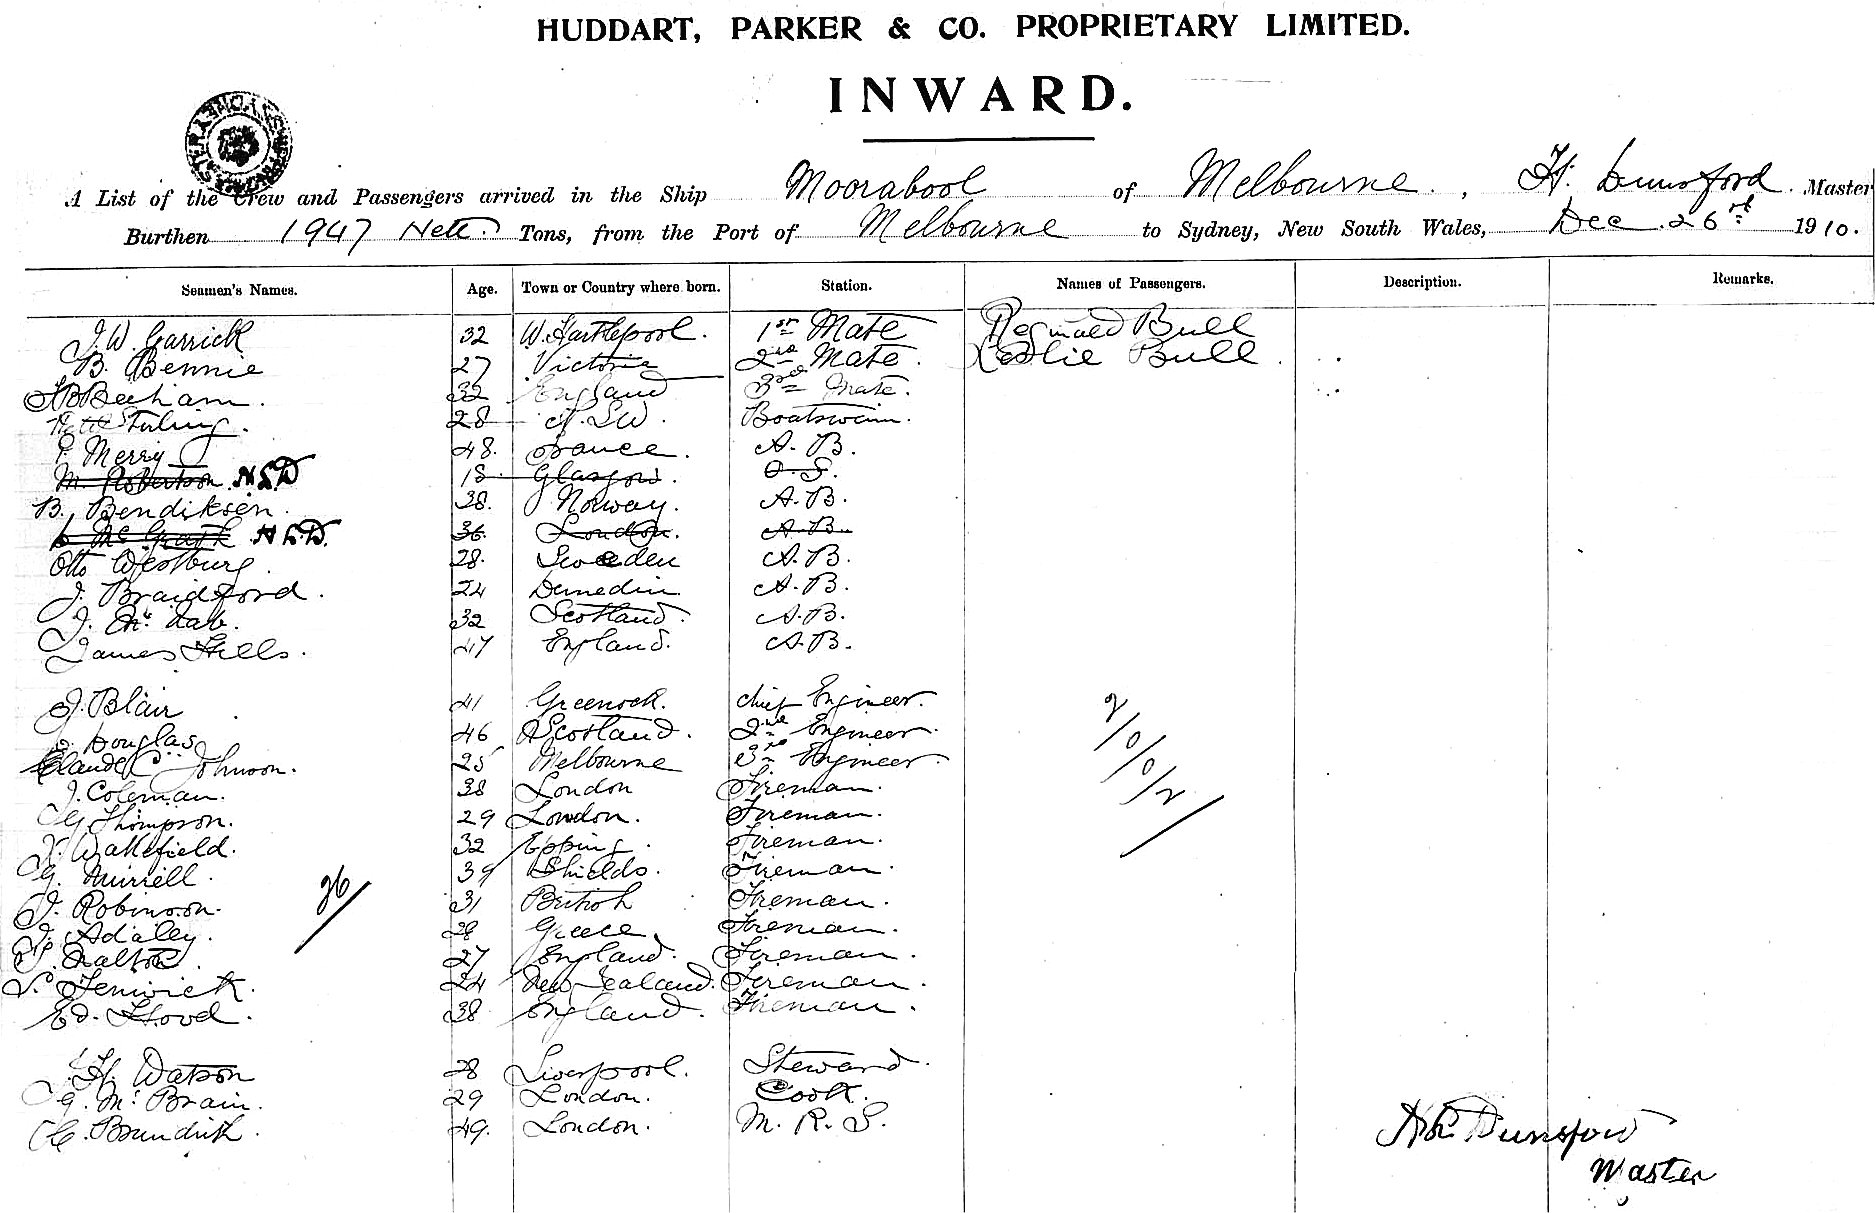 HUDDART, PARKER & CO. PROPRIETARY LIMITED.
INWARD.
A List of the Crew and Passengers arrived in the Ship Moorabool of Melbourne, H. Dunsford. Master
Burthen 1947 Nett. Tons, from the Port of Melbourne to Sydney, New South Wales, Dec. 26 1910.
Seamen's Names. Age. Town or Country where born. Station. Names of Passengers. Description. Remarks.
J. W. Garrick 32 W. Hartlepool. 1st Mate Reginald Bull
B. Bennie 27 Victoria 2nd Mate. Leslie Bull
Beeham. 32 England 3rd Mate.
Stirling. 28 N.S.W. Boatswain.
Merry 48. France. A.B.
M. Robertson 18 Glasgow. O.S.
B. Bendiksen. 38. Norway. A.B.
Mc Grath 36. London. A.B.
Otto Westburg. 28. Sweden A.B.
J. Braidford. 24 Dunedin. A.B.
J. Mc Nab. 32 Scotland. A.B.
James Hills. 47 England. A.B.
J. Blair 41 Greenock. Chief Engineer.
Douglas 46 Scotland. 2nd Engineer.
Claude C. Johnson. 25 Melbourne 3rd Engineer
J. Coleman. 38 London Fireman.
G. Thompson. 29 London. Fireman.
Wakefield. 32 Epping. Fireman.
G. Murrell. 39 Shields. Fireman.
J. Robinson. 31 British Fireman.
Adaley. 28 Greece. Fireman.
27 England. Fireman.
Fenwick. 24 New Zealand. Fireman.
Ed. Flood. 38 England. Fireman.
H. Watson 28 Liverpool. Steward.
G. Mc Brain. 29 London. Cook.
49. London. M. R. S.
26/
2/0/0/2/
Dunsford
Master